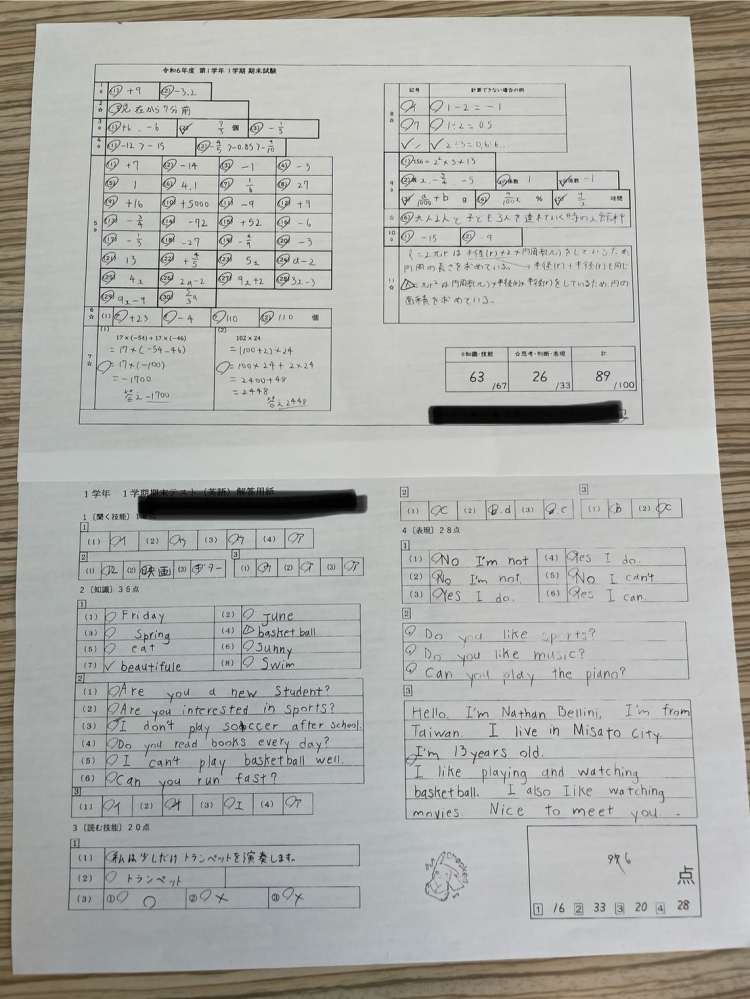 令和6年度 第1学年1学期 期末試験
(1) +9 (2) -3.2
現在から7分前
(1) +6, -6 (2) 7/3 個 (3) -1/5
(1) -12 > -15 (2) -4/5 > -0.85 > -9/10
(1) +7 (2) -14 (3) -1 (4) -3
(5) 1 (6) 4.1 (7) 1/8 (8) 27
(9) +16 (10) +5000 (11) -9 (12) +9
(13) -3/4 (14) -72 (15) +52 (16) -6
(17) -1/5 (18) -27 (19) -4/9 (20) -3
(21) 13 (22) +4/5 (23) 5x (24) a-2
(25) 4x (26) 2a-2 (27) 9x+2 (28) 3x-3
(29) 9x-9 (30)
6 (1) +23 -4 110 (2) 110 個
7
(1) 17×(-54)+17×(-46)
=17×(-54-46)
=17×(-100)
=-1700
答え -1700
(2) 102×24
=(100+2)×24
=100×24+2×24
=2400+48
=2448
答え 2448
記号 計算できない場合の例
イ 1-2=-1
ウ 1÷2=0.5
2÷3=0.66...
(1) 156=2²×3×13
係数 1 係数 -1
a/1000+b g % 時間
(6) 大人2人と子ども3人を連れていく時の入館料
10 (1) -15 (2) -9
l=2πrは半径(r)×2×円周率(π)をしているため
円周の長さを求めている。→半径(r)×半径(r)も同じ
πr²は円周率(π)×半径(r)×半径(r)をしているため、円の
面積を求めている。
◇知識・技能 ☆思考・判断・表現 計
63 /67 26 /33 89 /100
1学年 1学期期末テスト（英語）解答用紙
1〔聞く技能〕
1
(1) イ (2) ウ (3) ウ (4) ア
2 3
(1) 12 (2) 映画 (3) ギター (1) ウ (2) イ (3) ア
2〔知識〕36点
1
(1) Friday (2) June
(3) Spring (4) basketball
(5) eat (6) Sunny
(7) beautifule (8) Swim
2
(1) Are you a new student?
(2) Are you interested in sports?
(3) I don't play soccer after school.
(4) Do you read books every day?
(5) I can't play basketball well.
(6) Can you run fast?
3
(1) イ (2) オ (3) エ (4) ア
3〔読む技能〕20点
1
(1) 私は少しだけトランペットを演奏します。
(2) トランペット
(3) ① ○ ② × ③ ×
2 3
(1) C (2) B.d (3) a.c (1) b (2) C
4〔表現〕28点
1
(1) No I'm not (4) Yes I do.
(2) No I'm not. (5) No I can't
(3) Yes I do. (6) Yes I can.
2
Do you like sports?
Do you like music?
Can you play the piano?
3
Hello. I'm Nathan Bellini, I'm from
Taiwan. I live in Misato City.
I'm 13 years old.
I like playing and watching
basketball. I also like watching
movies. Nice to meet you.
点
1 16 2 33 3 20 4 28